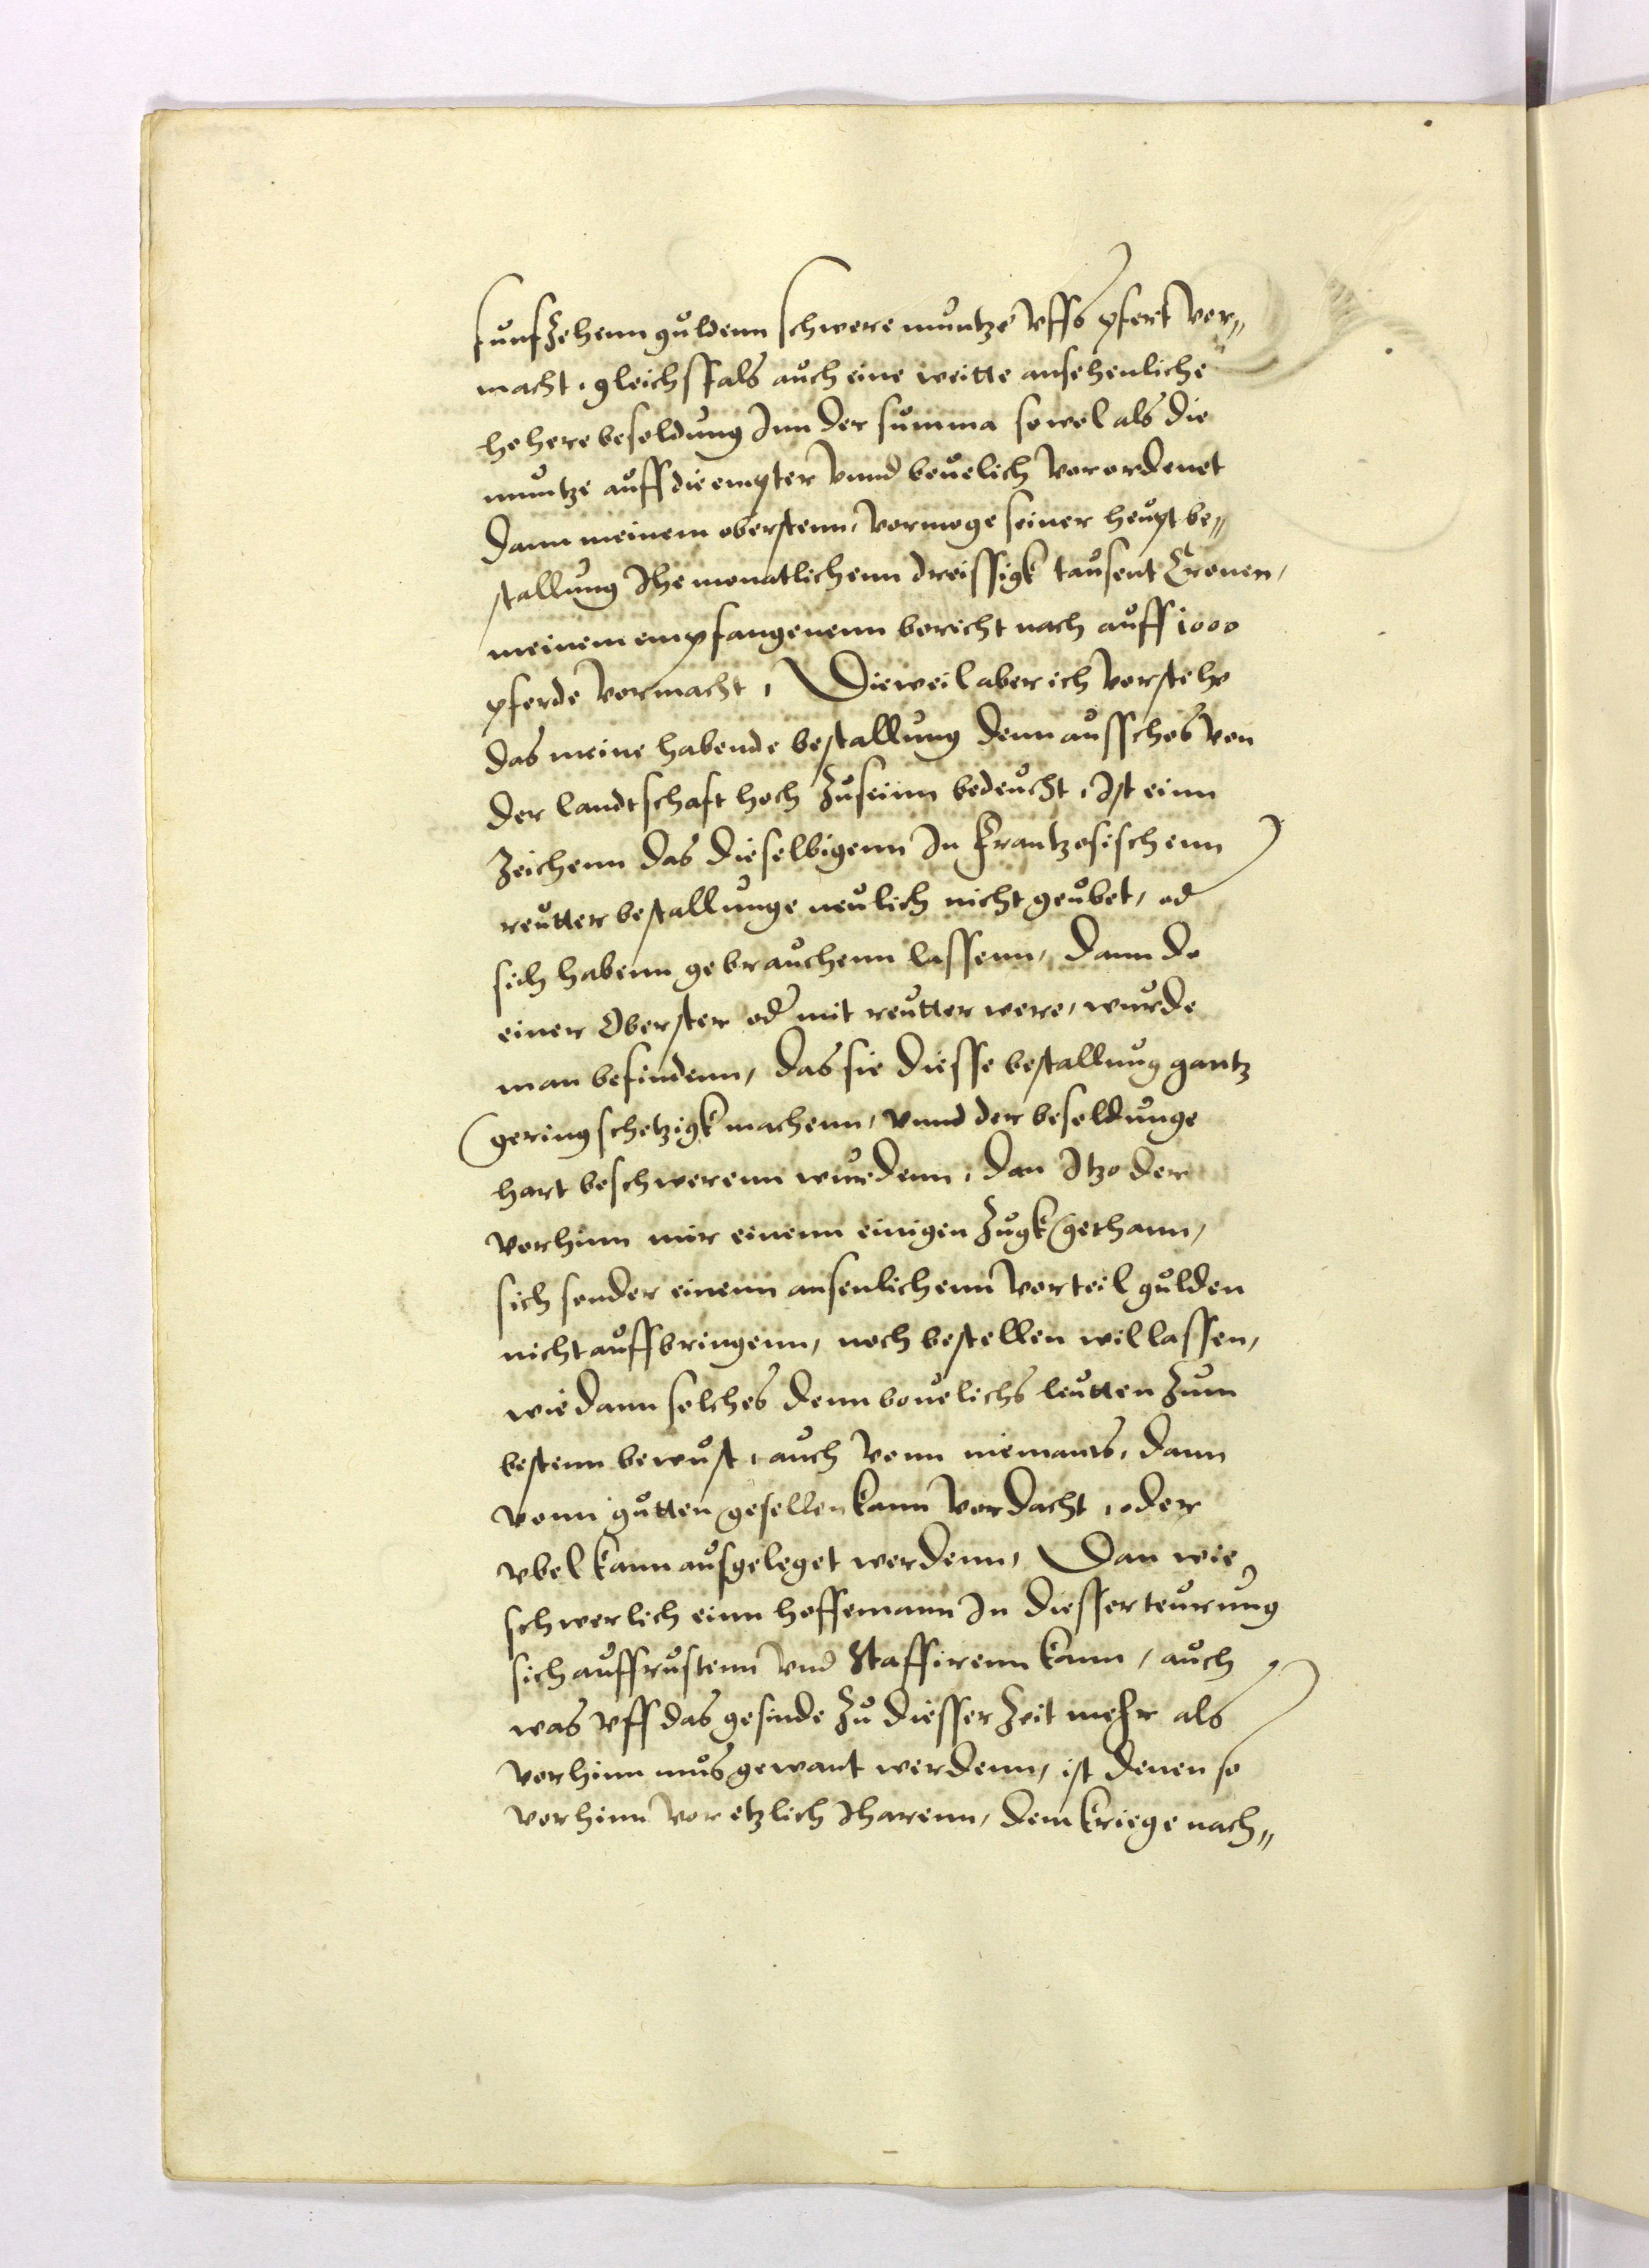 funfzehenn guldenn schwere muntze vffs pfert vor„
macht, gleichsfals auch eine weitte ansehenliche
hohere besoldung Inn der summa sowol als die
muntze auff die empter vnnd beuelich verordenet
Dann meinem oberstenn, vormoge seiner heupt be„
stallung Ihe monatlichenn dreissigk tausent Cronen,
meinem empfangenenn bericht nach auff 1000
pferde vormacht, Dieweil aber ich vorstehe
das meine habende bestallung denn ausschos von
der landtschaft hoch zuseinn bedeucht, Ist einn
zeichenn das dieselbigenn In frantzosischenn
reutter bestallunge neulich nicht geubet, od
sich habenn gebrauchenn lassenn, dann do
einer Oberster od mit reutter were, wurde
man befindenn, das sie diesse bestallung gantz
geringschetzigk machenn, vnnd der besoldunge
hart beschwerenn wurdenn, dan Itzo der
vorhinn nur einenn einigen zugk gethann,
sich sonder einenn ansenlichenn vorteil gulden
nicht auffbringenn, noch bestellen wil lassen,
wie dann solches denn beuelichs leutten zum
bestenn bewust, auch vonn niemants, dann
vonn gutten gesellen kann vordacht, oder
vbel kann ausgeleget werdenn, Dan wie
schwerlich einn hoffemann In diesser teurung
sich auffrustenn vnd Staffirenn kann, auch
was vff das gesinde zu diesser zeit mehr als
vorhinn mus gewant werdenn, ist denen so
vorhinn vor etzlich Iharenn, dem kriege nach„